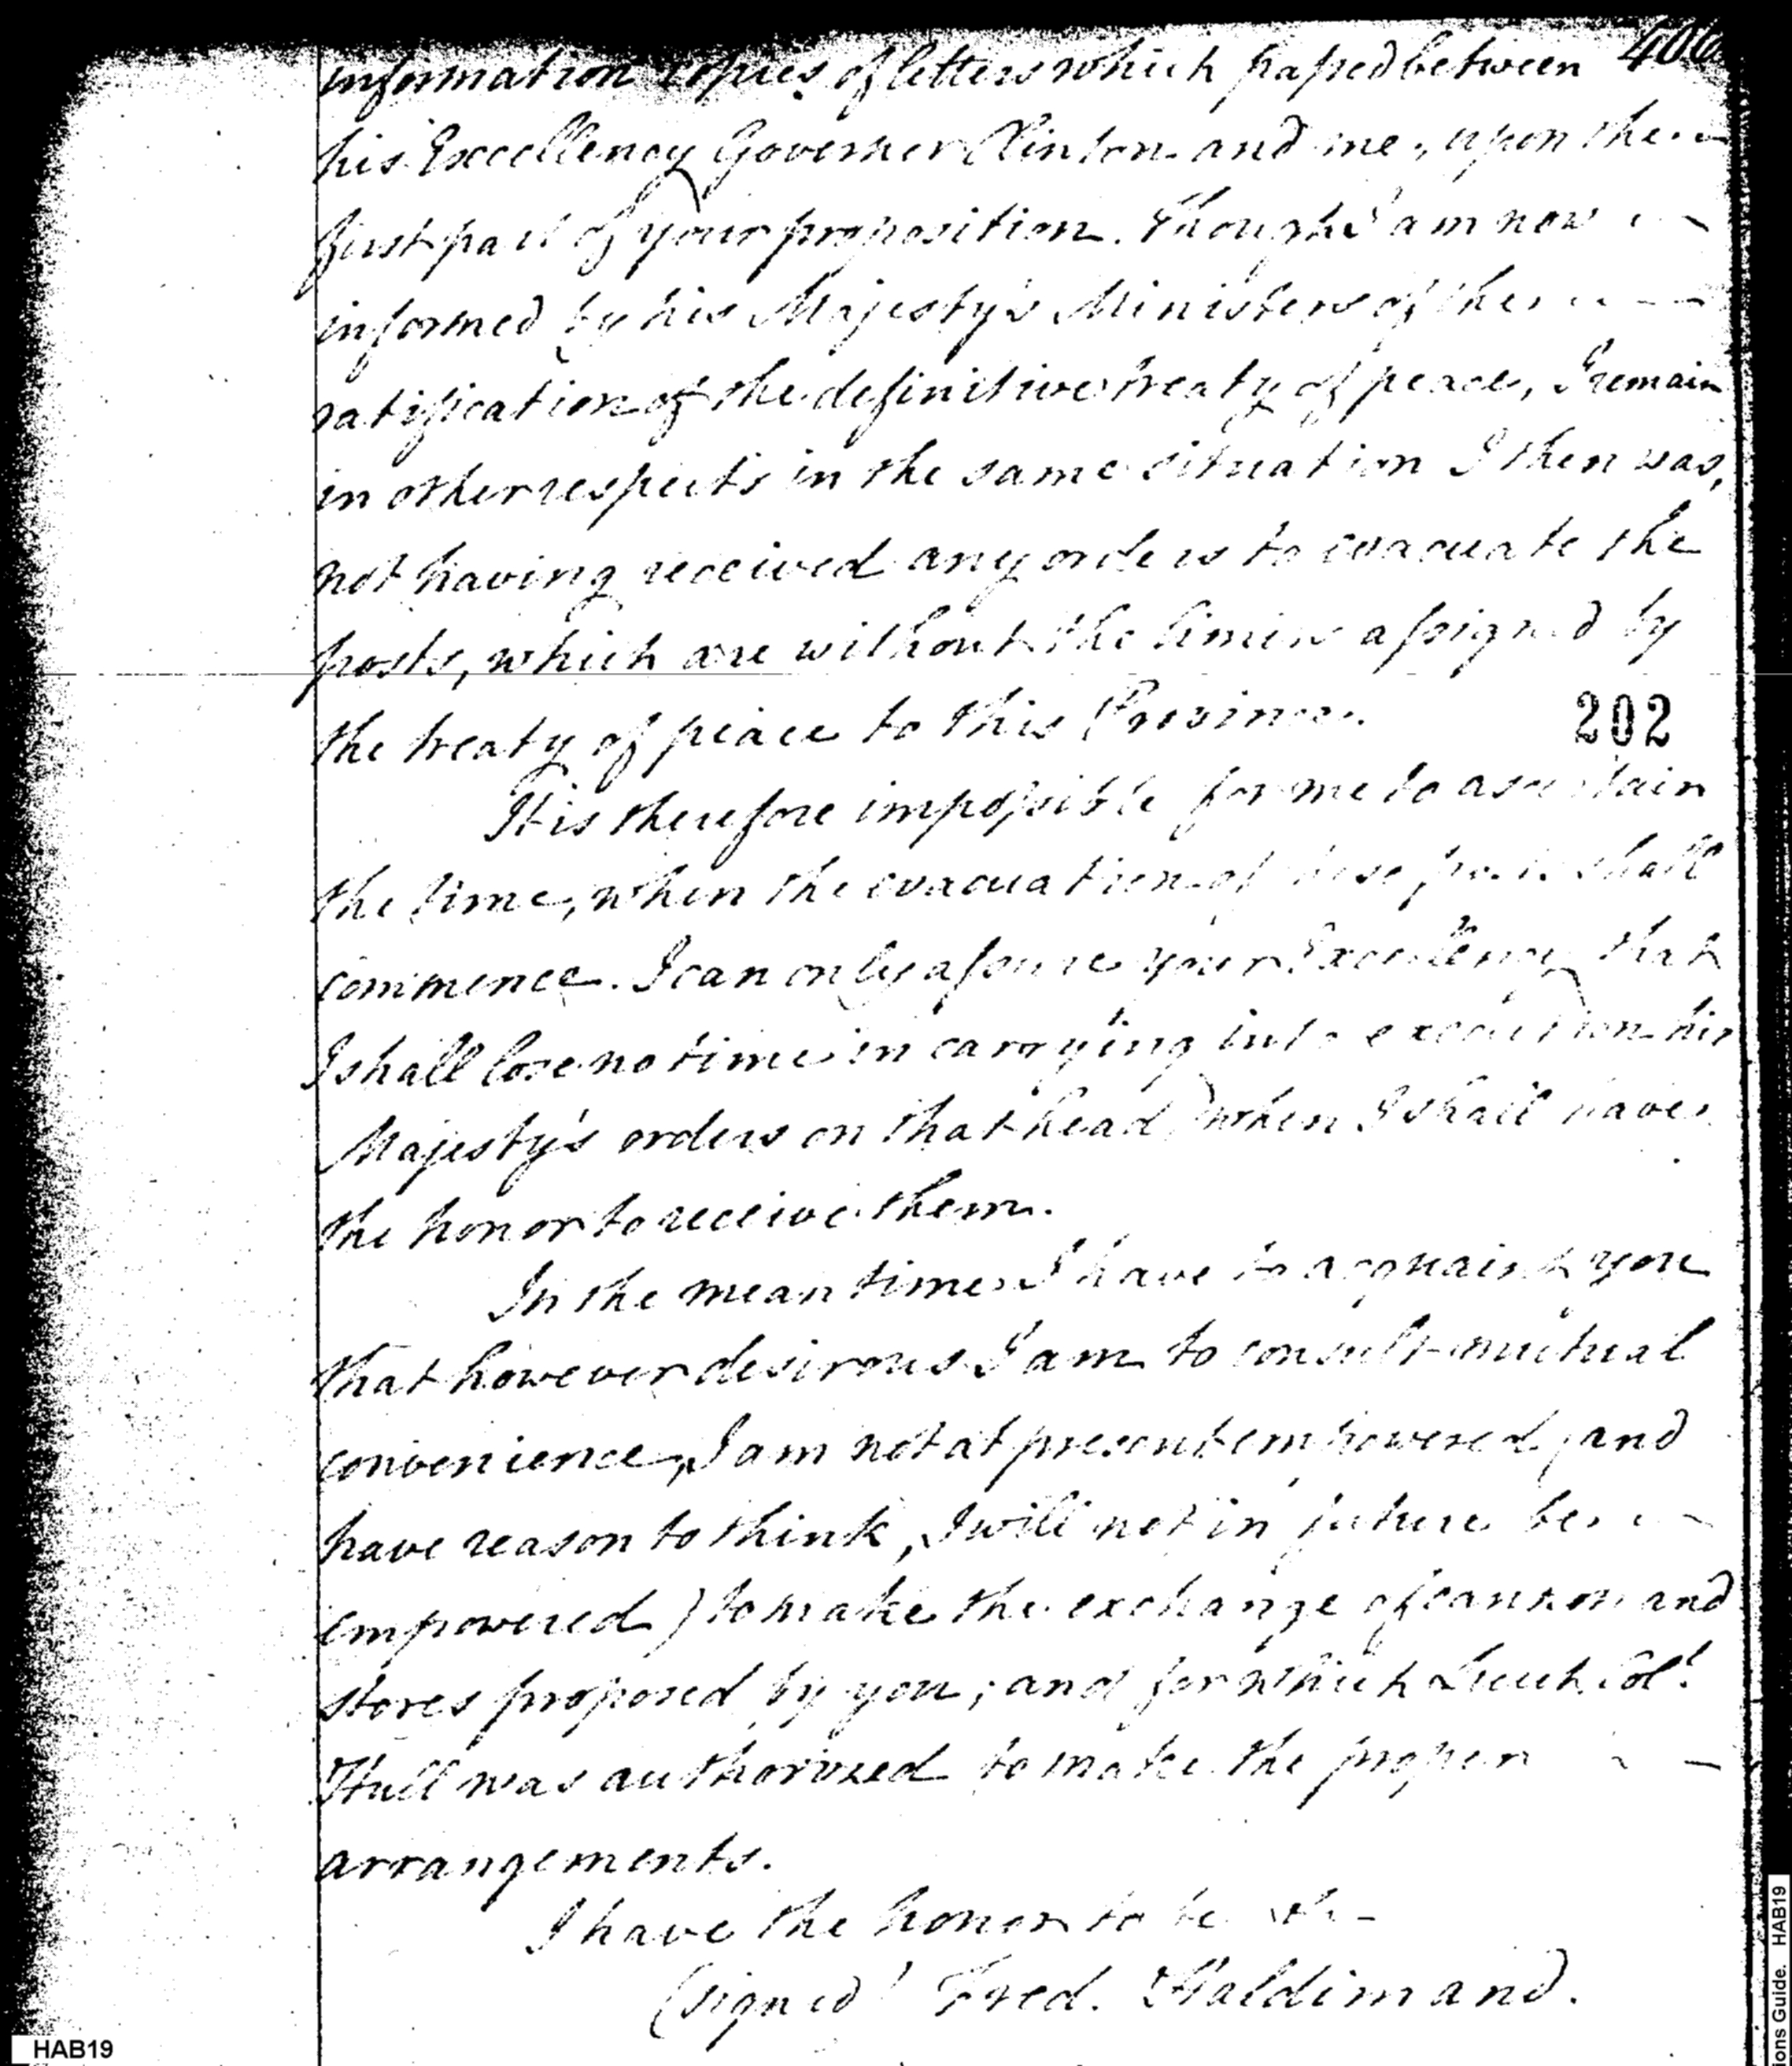 406
information copies of letters which passed between
his Excellency Governer Clinton and me, upon the
first part of your proposition. Though I am now
informed by his Majesty's Ministers of the
ratification of the definitive treaty of peace, I remain
in other respects in the same situation I then was,
not having received any orders to evacuate the
posts, which are without the limits assigned by
the treaty of peace to this Province.
202
It is therefore impossible for me to ascertain
the time, when the evacuation of these posts shall
commence. I can only assure your Excellency that
I shall lose no time in carrying into execution his
Majesty's orders on that head, when I shall have
the honor to receive them.
In the mean time I have to acquaint you
that however desirous I am to consult mutual
convenience, I am not at present empowered, and
have reason to think, I will not in future be
empowered) to make the exchange of cannon and
stores proposed by you; and for which Lieut. Col!
Hull was authorized to make the proper
arrangements.
I have the honor to be &c -
(signed) Fred. Haldimand.
HAB19
ons Guide. HAB19